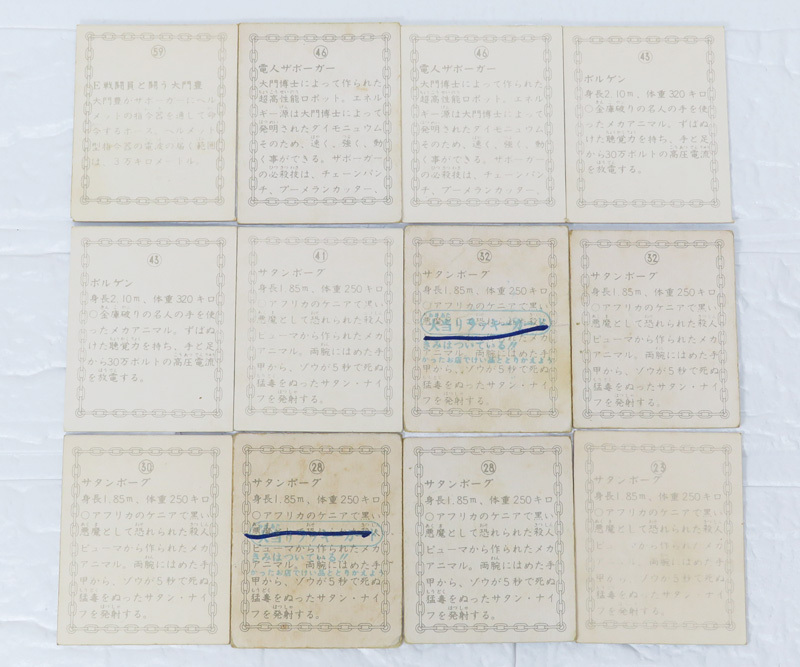 59
E戦闘員と闘う大門豊
大門豊がサボーガーにヘル
メットの指令器を通して命
令するポーズ。ヘルメット
型指令器の電波の届く範囲
は、35キロメートル。
46
電人ザボーガー
大門博士によって作られた
超高性能ロボット。エネル
ギー源は大門博士によって
発明されたダイモニュウム
そのため、速く、強く、動
く事ができる。ザボーガー
の必殺技は、チェーンパン
チ、ブーメランカッター、
46
電人ザボーガー
大門博士によって作られた
超高性能ロボット。エネル
ギー源は大門博士によって
発明されたダイモニュウム
そのため、速く、強く、動
く事ができる。ザボーガー
の必殺技は、チェーンパン
チ、ブーメランカッター、
43
ボルゲン
身長2.10m、体重320キロ
○金庫破りの名人の手を使
ったメカアニマル。ずばぬ
けた聴覚力を持ち、手と足
から30万ボルトの高圧電流
を放電する。
43
ボルゲン
身長2.10m、体重320キロ
○金庫破りの名人の手を使
ったメカアニマル。ずばぬ
けた聴覚力を持ち、手と足
から30万ボルトの高圧電流
を放電する。
41
サタンボーグ
身長1.85m、体重250キロ
○アフリカのケニアで黒い
悪魔として恐れられた殺人
ピューマから作られたメカ
アニマル。両腕にはめた手
甲から、ゾウが5秒で死ぬ
猛毒をぬったサタン・ナイ
フを発射する。
32
サタンボーグ
身長1.85m、体重250キロ
○アフリカのケニアで黒い
大当りラッキーカード
きみはついている!!
かったお店でけい品ととりかえよう
アニマル。両腕にはめた手
甲から、ゾウが5秒で死ぬ
猛毒をぬったサタン・ナイ
フを発射する。
32
サタンボーグ
身長1.85m、体重250キロ
○アフリカのケニアで黒い
悪魔として恐れられた殺人
ピューマから作られたメカ
アニマル。両腕にはめた手
甲から、ゾウが5秒で死ぬ
猛毒をぬったサタン・ナイ
フを発射する。
30
サタンボーグ
身長1.85m、体重250キロ
○アフリカのケニアで黒い
悪魔として恐れられた殺人
ピューマから作られたメカ
アニマル。両腕にはめた手
甲から、ゾウが5秒で死ぬ
猛毒をぬったサタン・ナイ
フを発射する。
28
サタンボーグ
身長1.85m、体重250キロ
○アフリカのケニアで黒い
ピューマから作られたメカ
きみはついている!!
アニマル。両腕にはめた手
かったお店でけい品ととりかえよう
甲から、ゾウが5秒で死ぬ
猛毒をぬったサタン・ナイ
フを発射する。
28
サタンボーグ
身長1.85m、体重250キロ
○アフリカのケニアで黒い
悪魔として恐れられた殺人
ピューマから作られたメカ
アニマル。両腕にはめた手
甲から、ゾウが5秒で死ぬ
猛毒をぬったサタン・ナイ
フを発射する。
23
サタンボーグ
身長1.85m、体重250キロ
○アフリカのケニアで黒い
悪魔として恐れられた殺人
から作られたメカ
アニマル。両腕にはめた手
甲から、ゾウが5秒で死ぬ
猛毒をぬったサタン・ナイ
フを発射する。